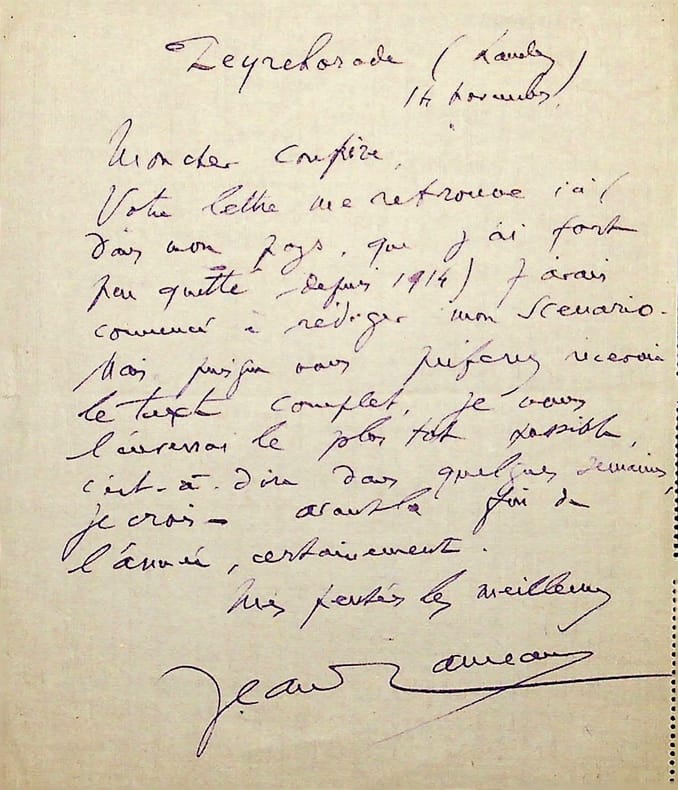 Peyrehorade (Landes)
14 novembre.
Mon cher confrère,
Votre lettre me retrouve ici (
dans mon pays, que j'ai fort
peu quitté depuis 1914) J'avais
commencé à rédiger mon scenario.
Mais puisque vous préférez recevoir
le texte complet, je vous
l'enverrai le plus tôt possible,
c'est-à-dire dans quelques semaines,
je crois – avant la fin de
l'année, certainement.
Mes pensées les meilleures
Jean Rameau